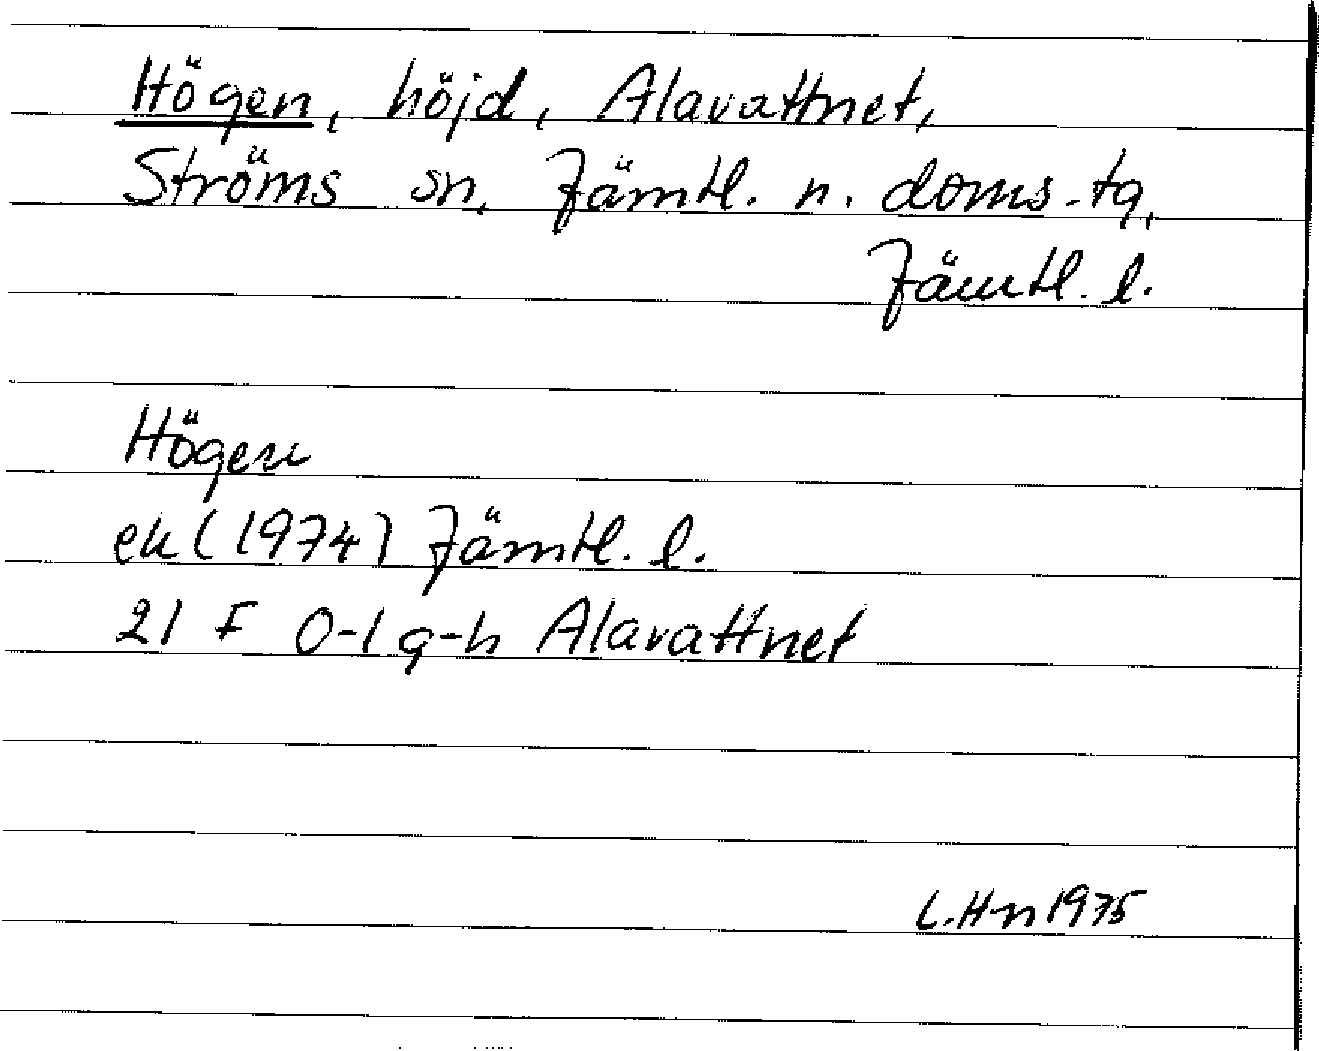 Högen, höjd, Alavattnet,
Ströms sn, Jämtl. n. doms-tg,
Jämtl. l.
Högen
ek (1974) Jämtl. l.
21 F 0-1 g-h Alavattnet
L.Hn 1975